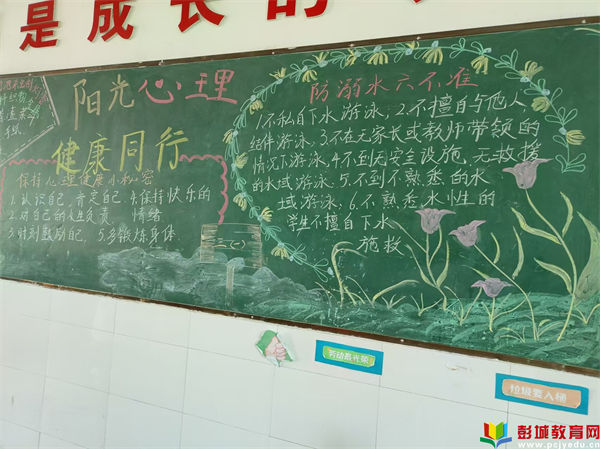 是成长的
阳光心理
健康同行
保持心理健康小秘密
1.认识自己,肯定自己 4.保持快乐的
2.对自己的人生负责 情绪
3.时刻鼓励自己, 5.多锻炼身体
三(一)
防溺水六不准
1.不私自下水游泳;2.不擅自与他人
结伴游泳,3.不在无家长或教师带领的
情况下游泳,4.不到无安全设施、无救援
的水域游泳,5.不到不熟悉的水
域游泳,6.不熟悉水性的
学生不擅自下水
施救
劳动最光荣
垃圾要入桶
彭城教育网
www.pcjyedu.cn